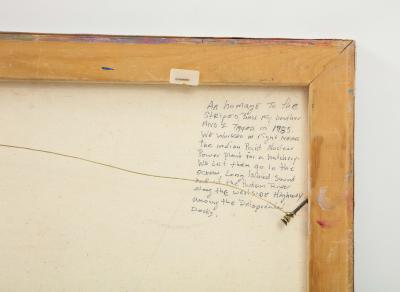 An homage To the
STRIPED Bass my brother
AND I Tagged in 1985.
We worked at night near
the indian Point Nuclear
Power plant for a hatchery.
We let them go in the
ocean, Long Island Sound
the Hudson River
along the Westside Highway
among the
Docks.